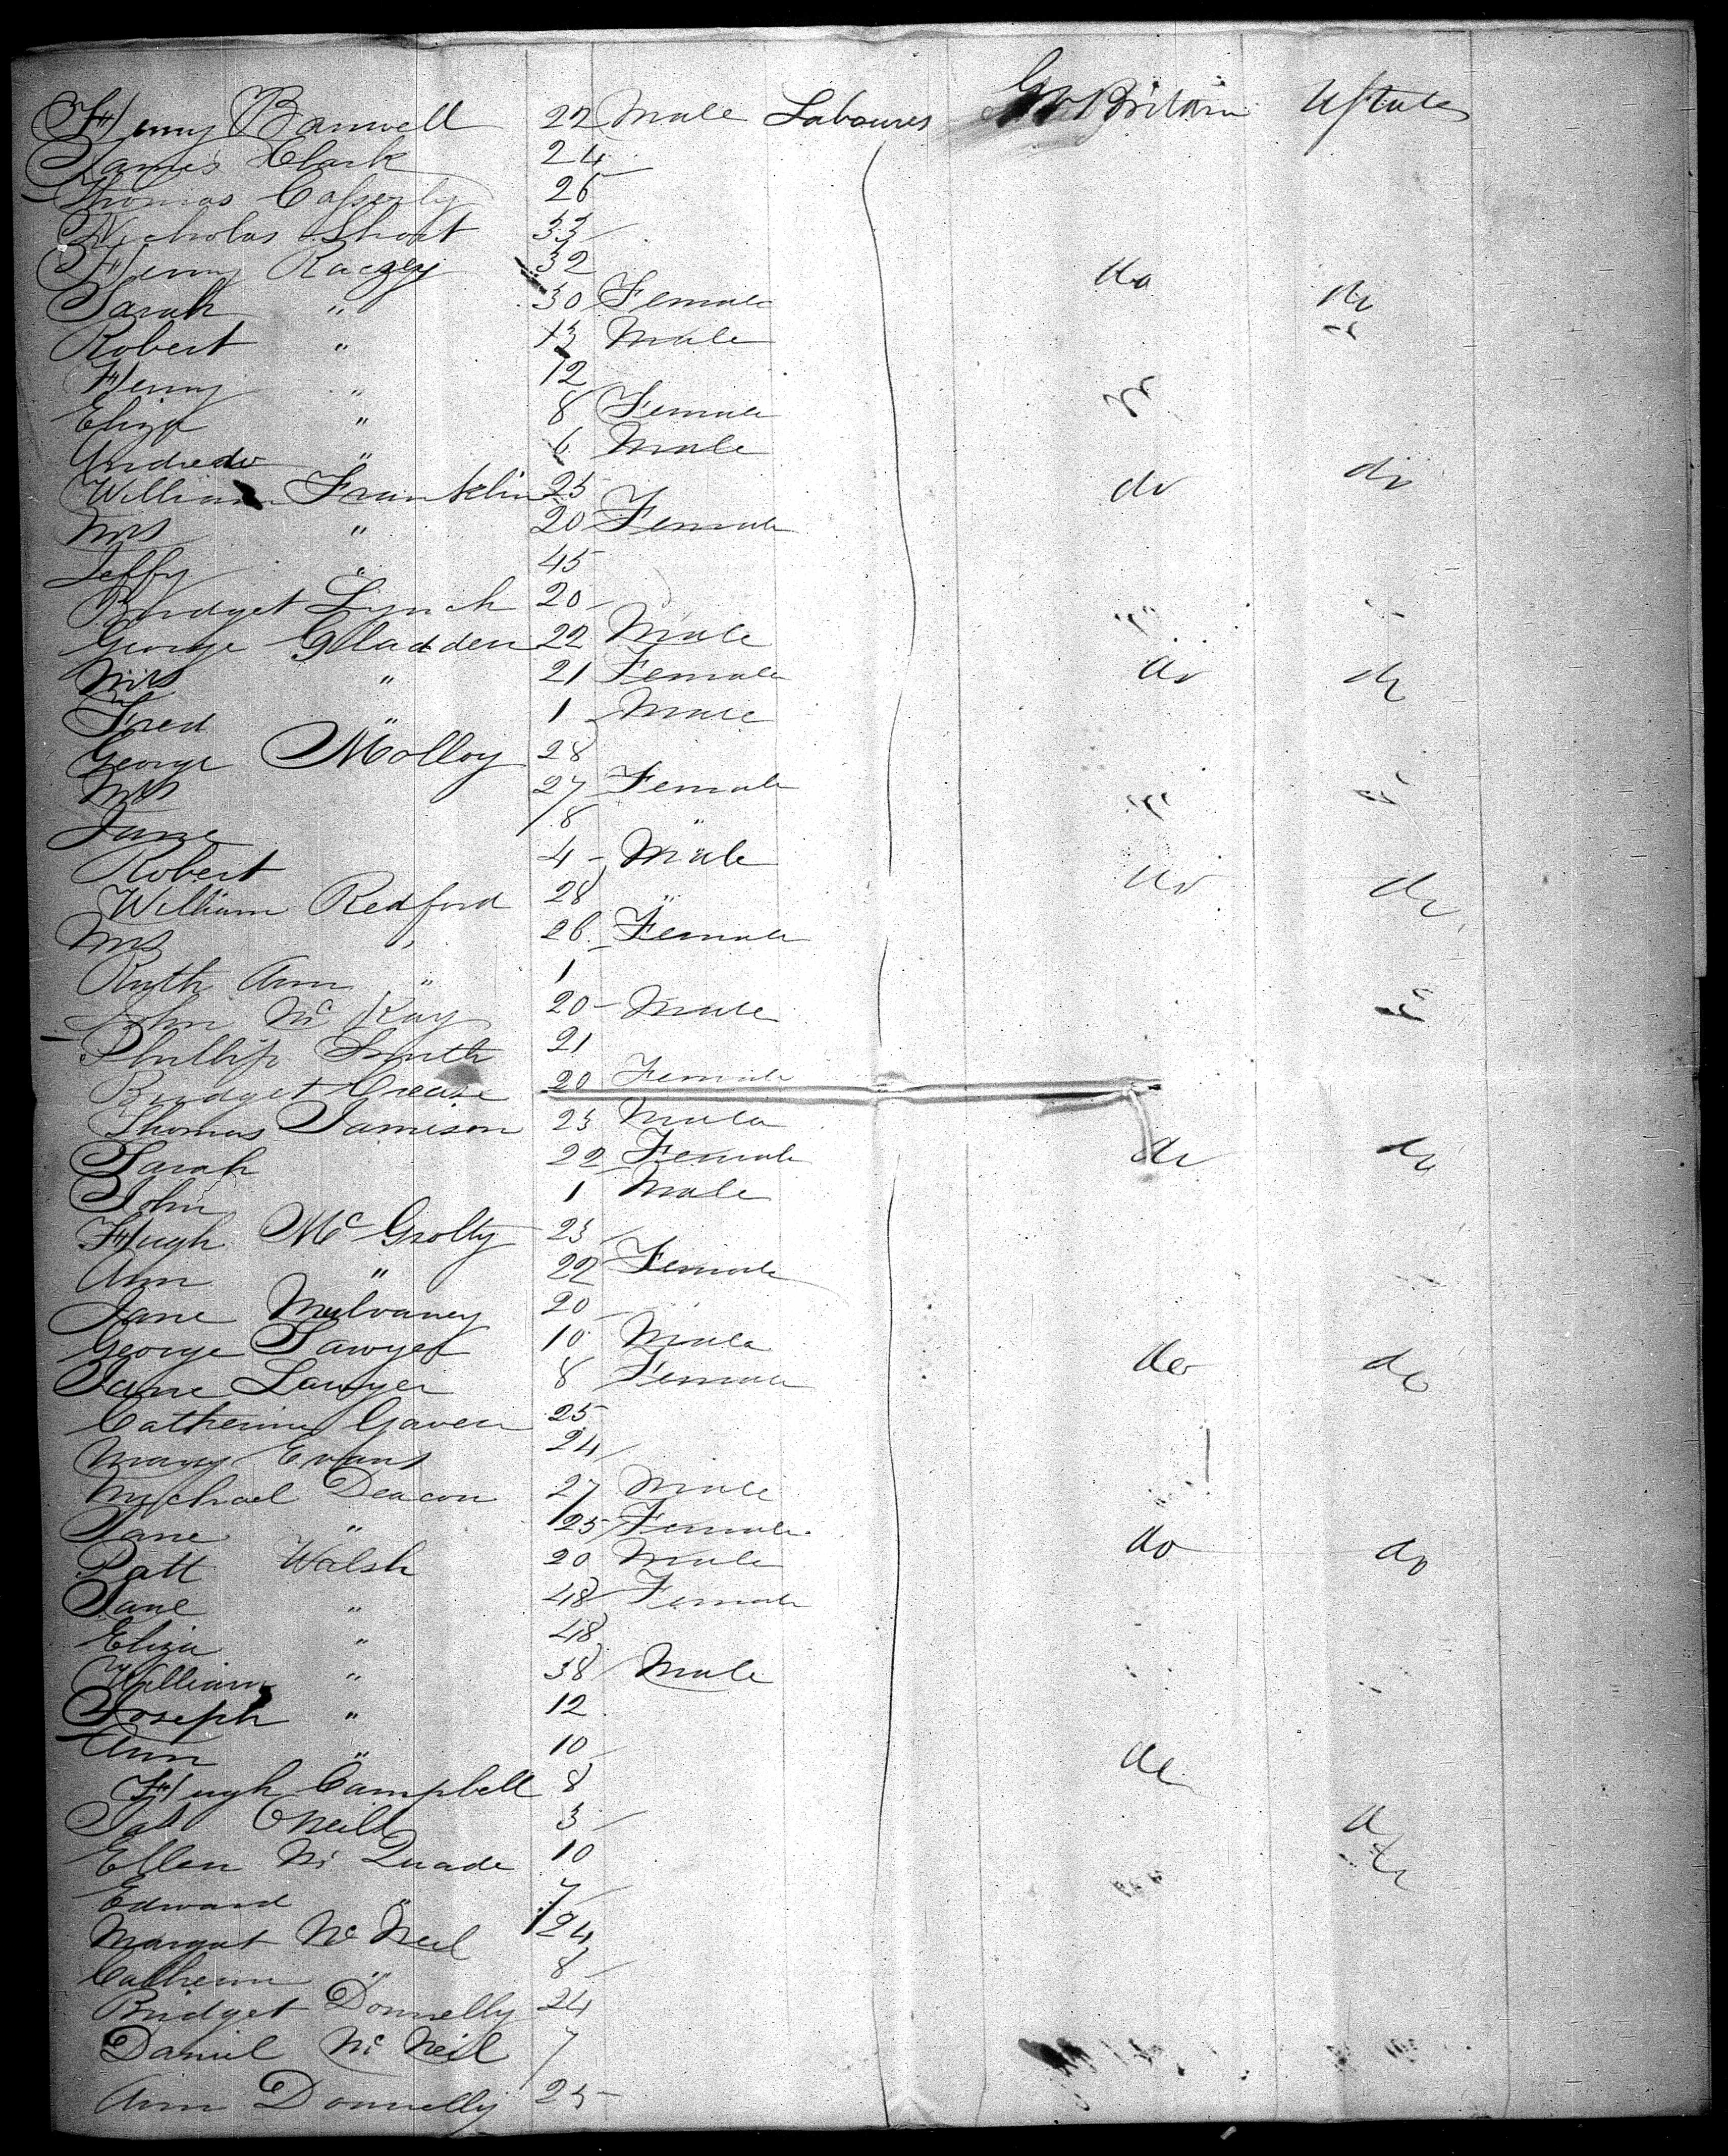 Henny Banwell 22 Male Laboures Gr Britain UStates
James Clark 24
Thomas Casserly 26
Nicholas Short 33
Henny 32 do
Sarah " 30 Female do
Robert " 13 Male
Henny " 12
Eliza " 8 Female
Andrew " 6 Male
William Franklin 25 do do
Mrs " 20 Female
Jeffy " 45
Bridget Lynch 20
George Gladden 22 Male
Mrs " 21 Female do do
Fred " 1 Male
George Molloy 28
Mrs 27 Female
Jane 8 "
Robert 4 Male
William Redford 28 " do do
Mrs " 26 Female
Ruth Ann " 1
John Mc Kay 20 Male
Phillip Smith 21
Bridget Crease 20 Female
Thomas Jamison 23 Male
Sarah 22 Female do do
John 1 Male
Hugh Mc Grolty 23
Ann " 22 Female
Jane Mulvaney 20
George Sawyer 10 Male
Jane Sawyer 8 Female do do
Catherine Gaven 25
Mary Evans 24
Michael Deacon 27 Male
Jane " 25 Female
Patt Walsh 20 Male do do
Jane " 48 Female
Eliza " 48
William " 38 Male
Joseph " 12
Ann " 10
Hugh Campbell 8 do
Pat ONeill 3 do
Ellen Mc Quade 10
Edward " 7
Margat Mc Neil 24
Catherin " 8
Bridget Donnelly 24
Daniel Mc Neil 7
Ann Donnelly 25